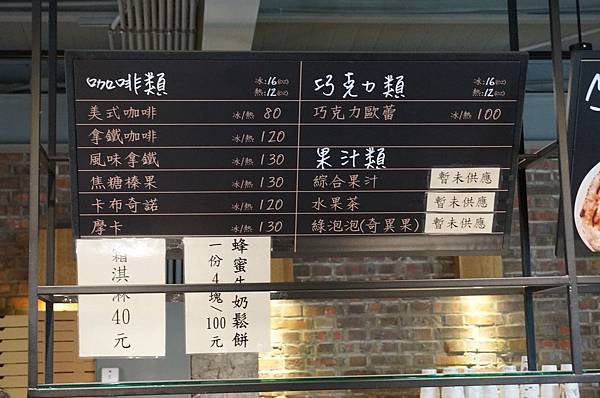 咖啡類 冰:16(oz) 熱:12(oz)
美式咖啡 冰/熱 80
拿鐵咖啡 冰/熱 120
風味拿鐵 冰/熱 130
焦糖榛果 冰/熱 130
卡布奇諾 冰/熱 120
摩卡 冰/熱 130
巧克力類 冰:16(oz) 熱:12(oz)
巧克力歐蕾 冰/熱 100
果汁類
綜合果汁 暫未供應
水果茶 暫未供應
綠泡泡(奇異果) 暫未供應
霜淇淋40元
蜂蜜牛奶鬆餅
一份4塊/100元